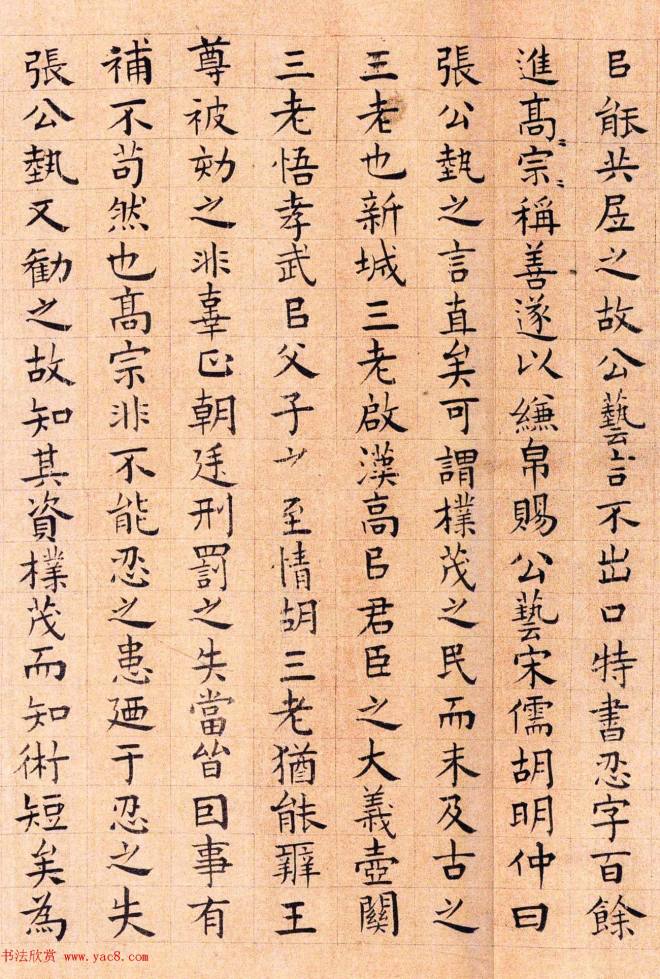 㠯能共居之故公藝言不出口特書忍字百餘
進高〻宗〻稱善遂以縑帛賜公藝宋儒胡明仲曰
張公埶之言直矣可謂樸茂之民而未及古之
三老也新城三老啟漢高㠯君臣之大義壺關
三老悟孝武㠯父子之至情胡三老猶能辨王
尊被劾之非辜正朝廷刑罰之失當皆囙事有
補不苟然也高宗非不能忍之患廼于忍之失
張公埶又勸之故知其資樸茂而知術短矣為
书法欣赏 www.yac8.com